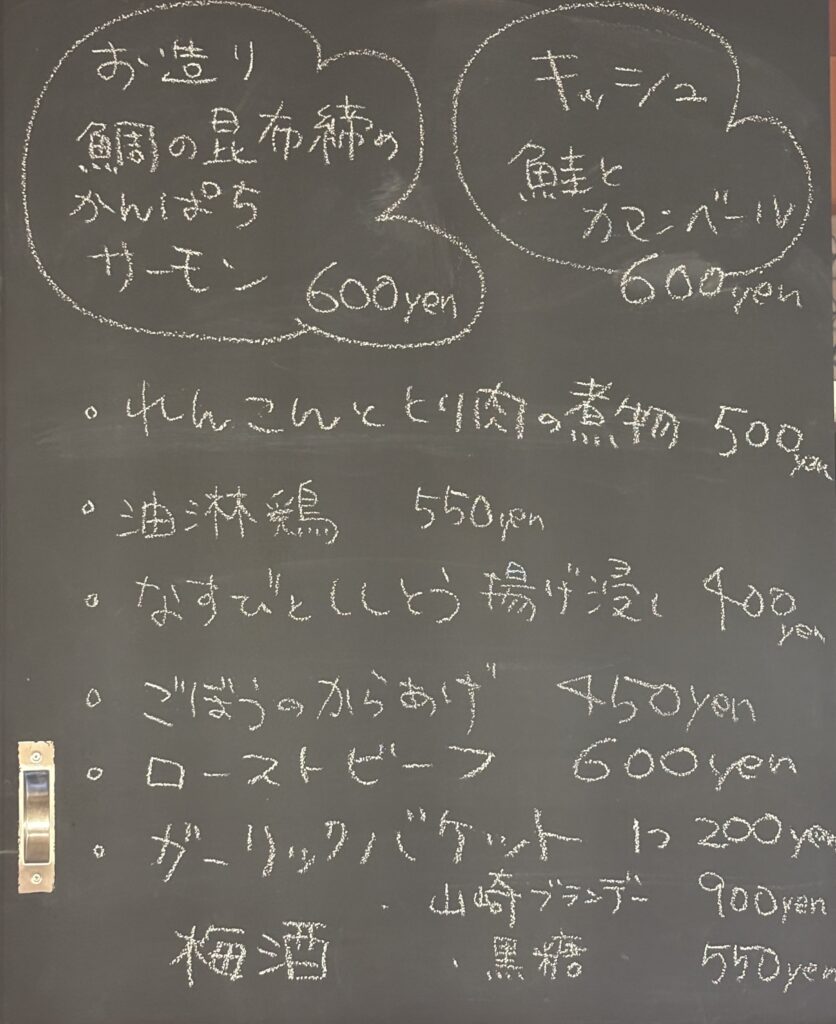 お造り
鯛の昆布締め
かんぱち
サーモン 600yen
キッシュ
鮭と
カマンベール
600yen
• れんこんととり肉の煮物 500yen
• 油淋鶏 550yen
• なすびとししとう揚げ浸し 400yen
• ごぼうのからあげ 450yen
• ローストビーフ 600yen
• ガーリックバケット 1コ 200yen
梅酒
・山崎ブランデー 900yen
・黒糖 550yen